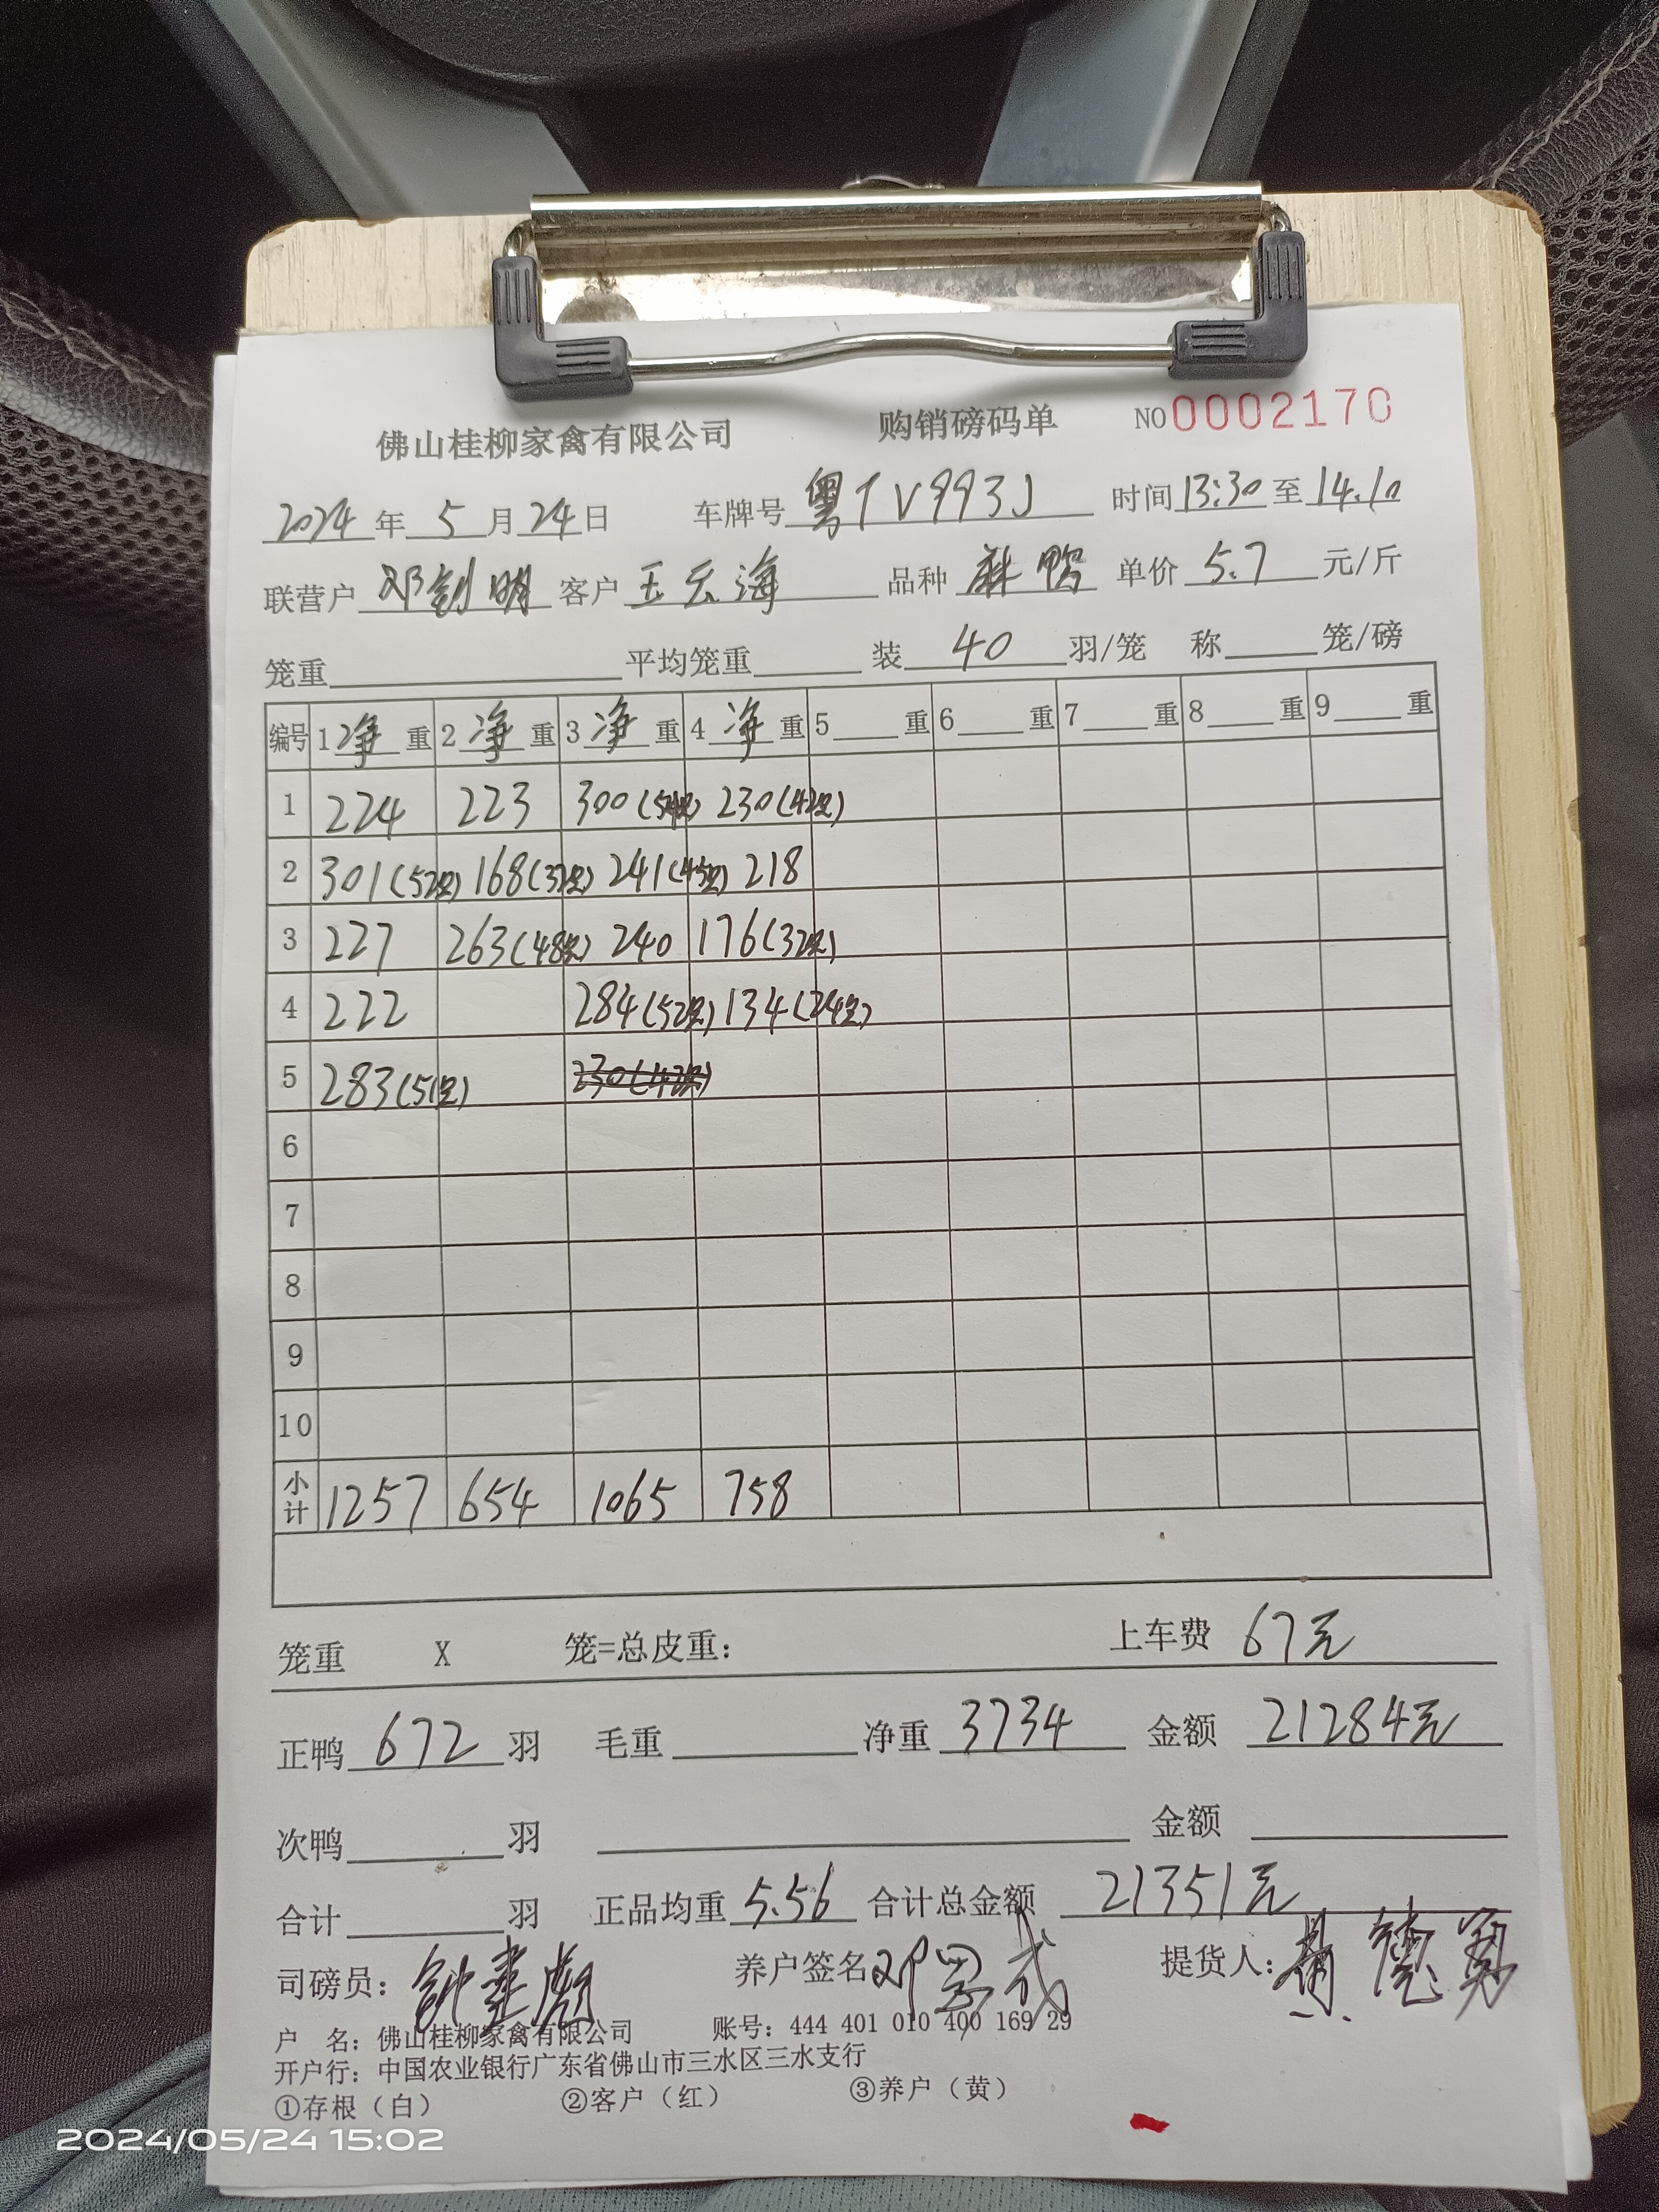 佛山桂柳家禽有限公司 购销磅码单 NO0002170
2024年5月24日 车牌号粤TV993J 时间13:30至14.10
联营户邓创明 客户王云海 品种麻鸭 单价5.7元/斤
笼重 平均笼重 装40羽/笼 称 笼/磅
编号 1净重 2净重 3净重 4净重 5重 6重 7重 8重 9重
1 224 223 300(54只) 230(42只)
2 301(52只) 168(32只) 241(45只) 218
3 227 263(48只) 240 176(32只)
4 222 284(52只) 134(24只)
5 283(51只) 230(42只)
6
7
8
9
10
小计 1257 654 1065 758
笼重 X 笼=总皮重: 上车费 67元
正鸭672羽 毛重 净重3734 金额21284元
次鸭 羽 金额
合计 羽 正品均重5.56 合计总金额21351元
司磅员: 养户签名 提货人:
户 名: 佛山桂柳家禽有限公司 账号: 444 401 010 400 169 29
开户行: 中国农业银行广东省佛山市三水区三水支行
①存根（白） ②客户（红） ③养户（黄）
2024/05/24 15:02